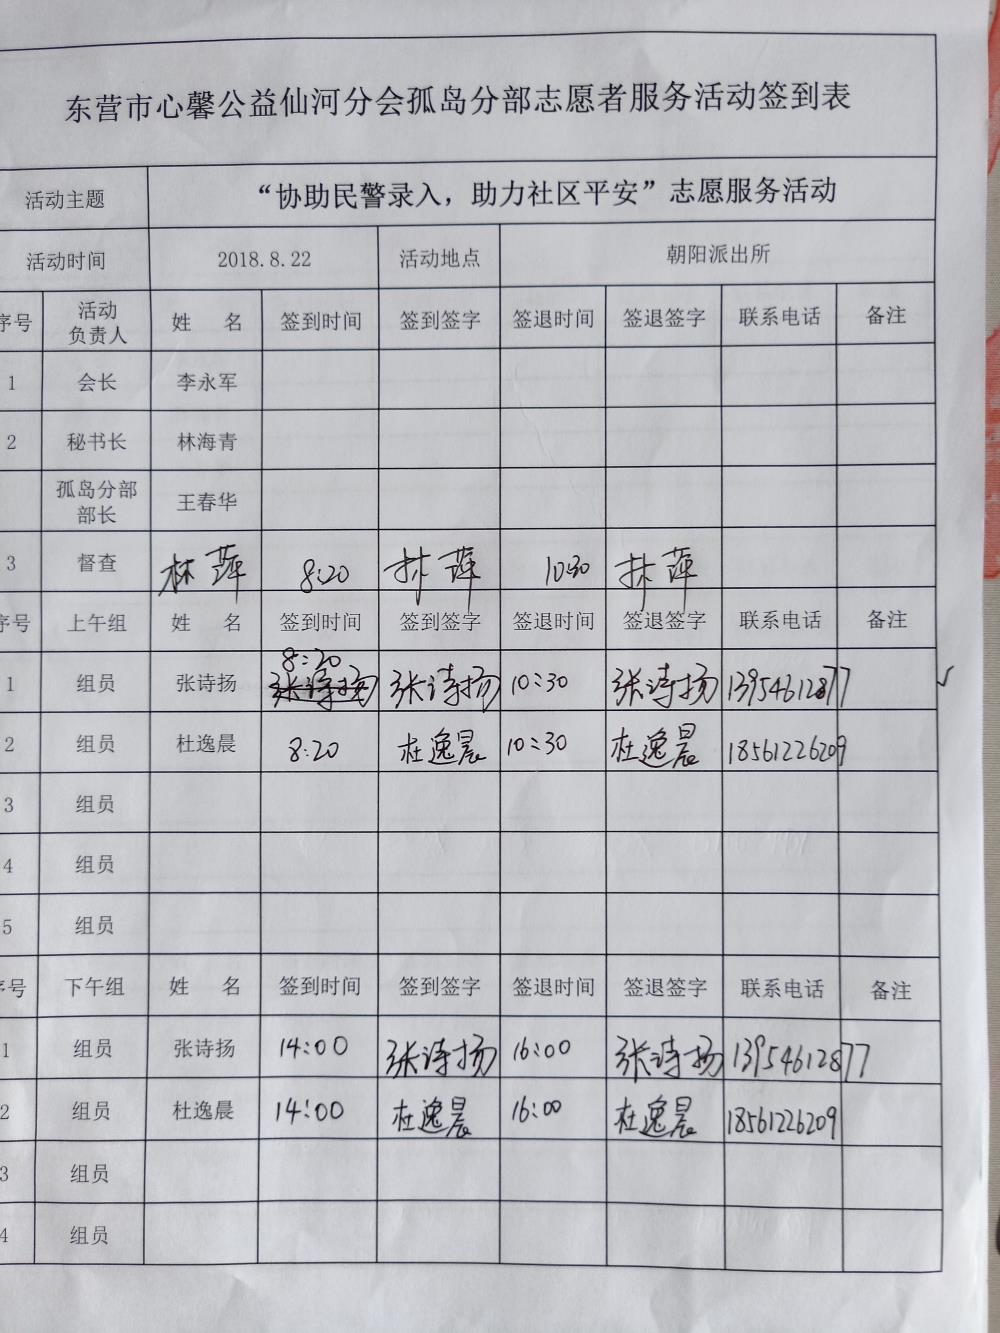 东营市心馨公益仙河分会孤岛分部志愿者服务活动签到表
活动主题 “协助民警录入，助力社区平安”志愿服务活动
活动时间 2018.8.22 活动地点 朝阳派出所
序号 活动负责人 姓 名 签到时间 签到签字 签退时间 签退签字 联系电话 备注
1 会长 李永军
2 秘书长 林海青
孤岛分部部长 王春华
3 督查 林萍 8:20 林萍 10:30 林萍
序号 上午组 姓 名 签到时间 签到签字 签退时间 签退签字 联系电话 备注
1 组员 张诗扬 8:20 张诗扬 10:30 张诗扬 13954612877 ✓
2 组员 杜逸晨 8:20 杜逸晨 10:30 杜逸晨 18561226209
3 组员
4 组员
5 组员
序号 下午组 姓 名 签到时间 签到签字 签退时间 签退签字 联系电话 备注
1 组员 张诗扬 14:00 张诗扬 16:00 张诗扬 13954612877
2 组员 杜逸晨 14:00 杜逸晨 16:00 杜逸晨 18561226209
3 组员
4 组员